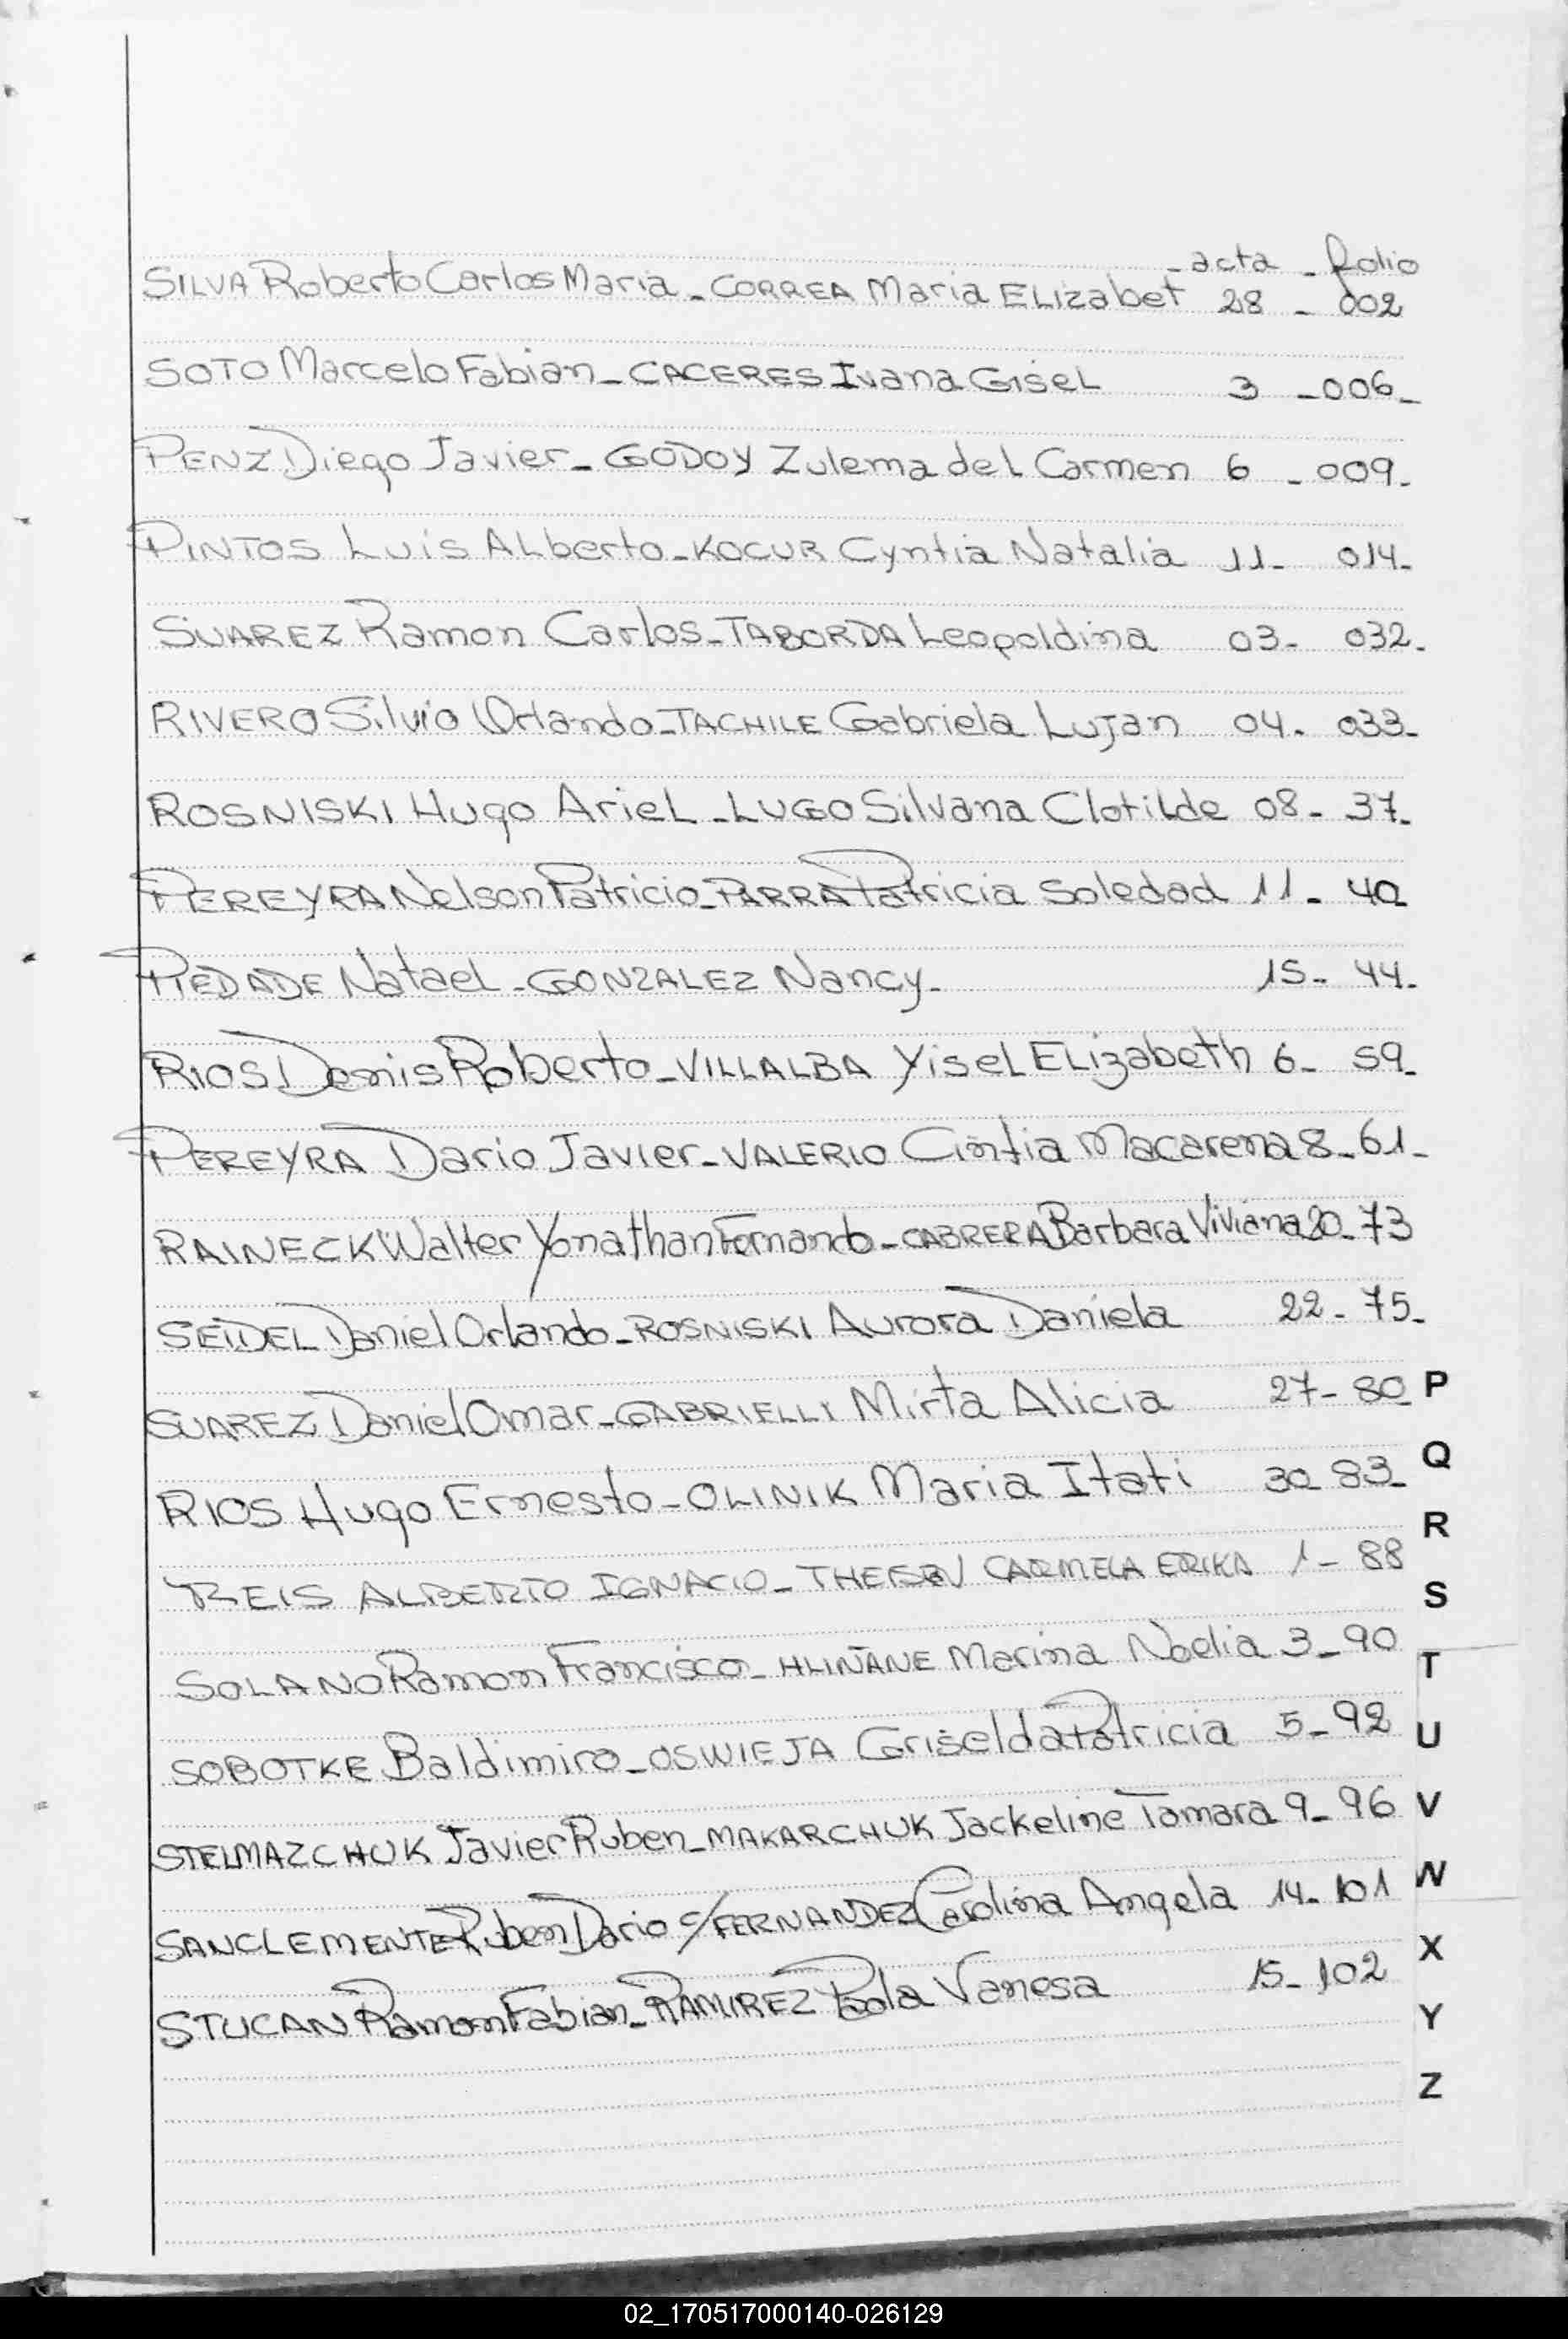 - acta - folio
SILVA Roberto Carlos Maria - CORREA Maria ELizabet 28 - 002
SOTO Marcelo Fabian - CACERES Ivana GiseL 3 - 006 -
PENZ Diego Javier - GODOY Zulema del Carmen 6 - 009 -
PINTOS Luis ALberto - KOCUR Cyntia Natalia 11 - 014 -
SUAREZ Ramon Carlos - TABORDA Leopoldina 03 - 032 -
RIVERO Silvio Orlando - TACHILE Gabriela Lujan 04 - 033 -
ROSNISKI Hugo ArieL - LUGO Silvana Clotilde 08 - 37 -
PEREYRA Nelson Patricio - PARRA Patricia Soledad 11 - 40
PIEDADE Natael - GONZALEZ Nancy - 15 - 44 -
RIOS Denis Roberto - VILLALBA YiseL ELizabeth 6 - 59 -
PEREYRA Dario Javier - VALERIO Cintia Macarena 8 - 61 -
RAINECK Walter Yonathan Fernando - CABRERA Barbara Viviana 20 - 73
SEIDEL Daniel Orlando - ROSNISKI Aurora Daniela 22 - 75 -
SUAREZ Daniel Omar - GABRIELLI Mirta Alicia 27 - 80 P
Q
RIOS Hugo Ernesto - OLINIK Maria Itati 30 83 -
R
REIS ALBERTO IGNACIO - CARMELA ERIKA 1 - 88
S
SOLANO Ramon Francisco - HLIÑANE Marina Noelia 3 - 90
T
SOBOTKE Baldimiro - OSWIEJA Griselda Patricia 5 - 92
U
STELMAZCHUK Javier Ruben - MAKARCHUK Jackeline Tamara 9 - 96 V
SANCLEMENTE Ruben Dario c/ FERNANDEZ Carolina Angela 14 - 101 W
X
STUCAN Ramon Fabian - RAMIREZ Paola Vanesa 15 - 102
Y
Z
02_170517000140-026129